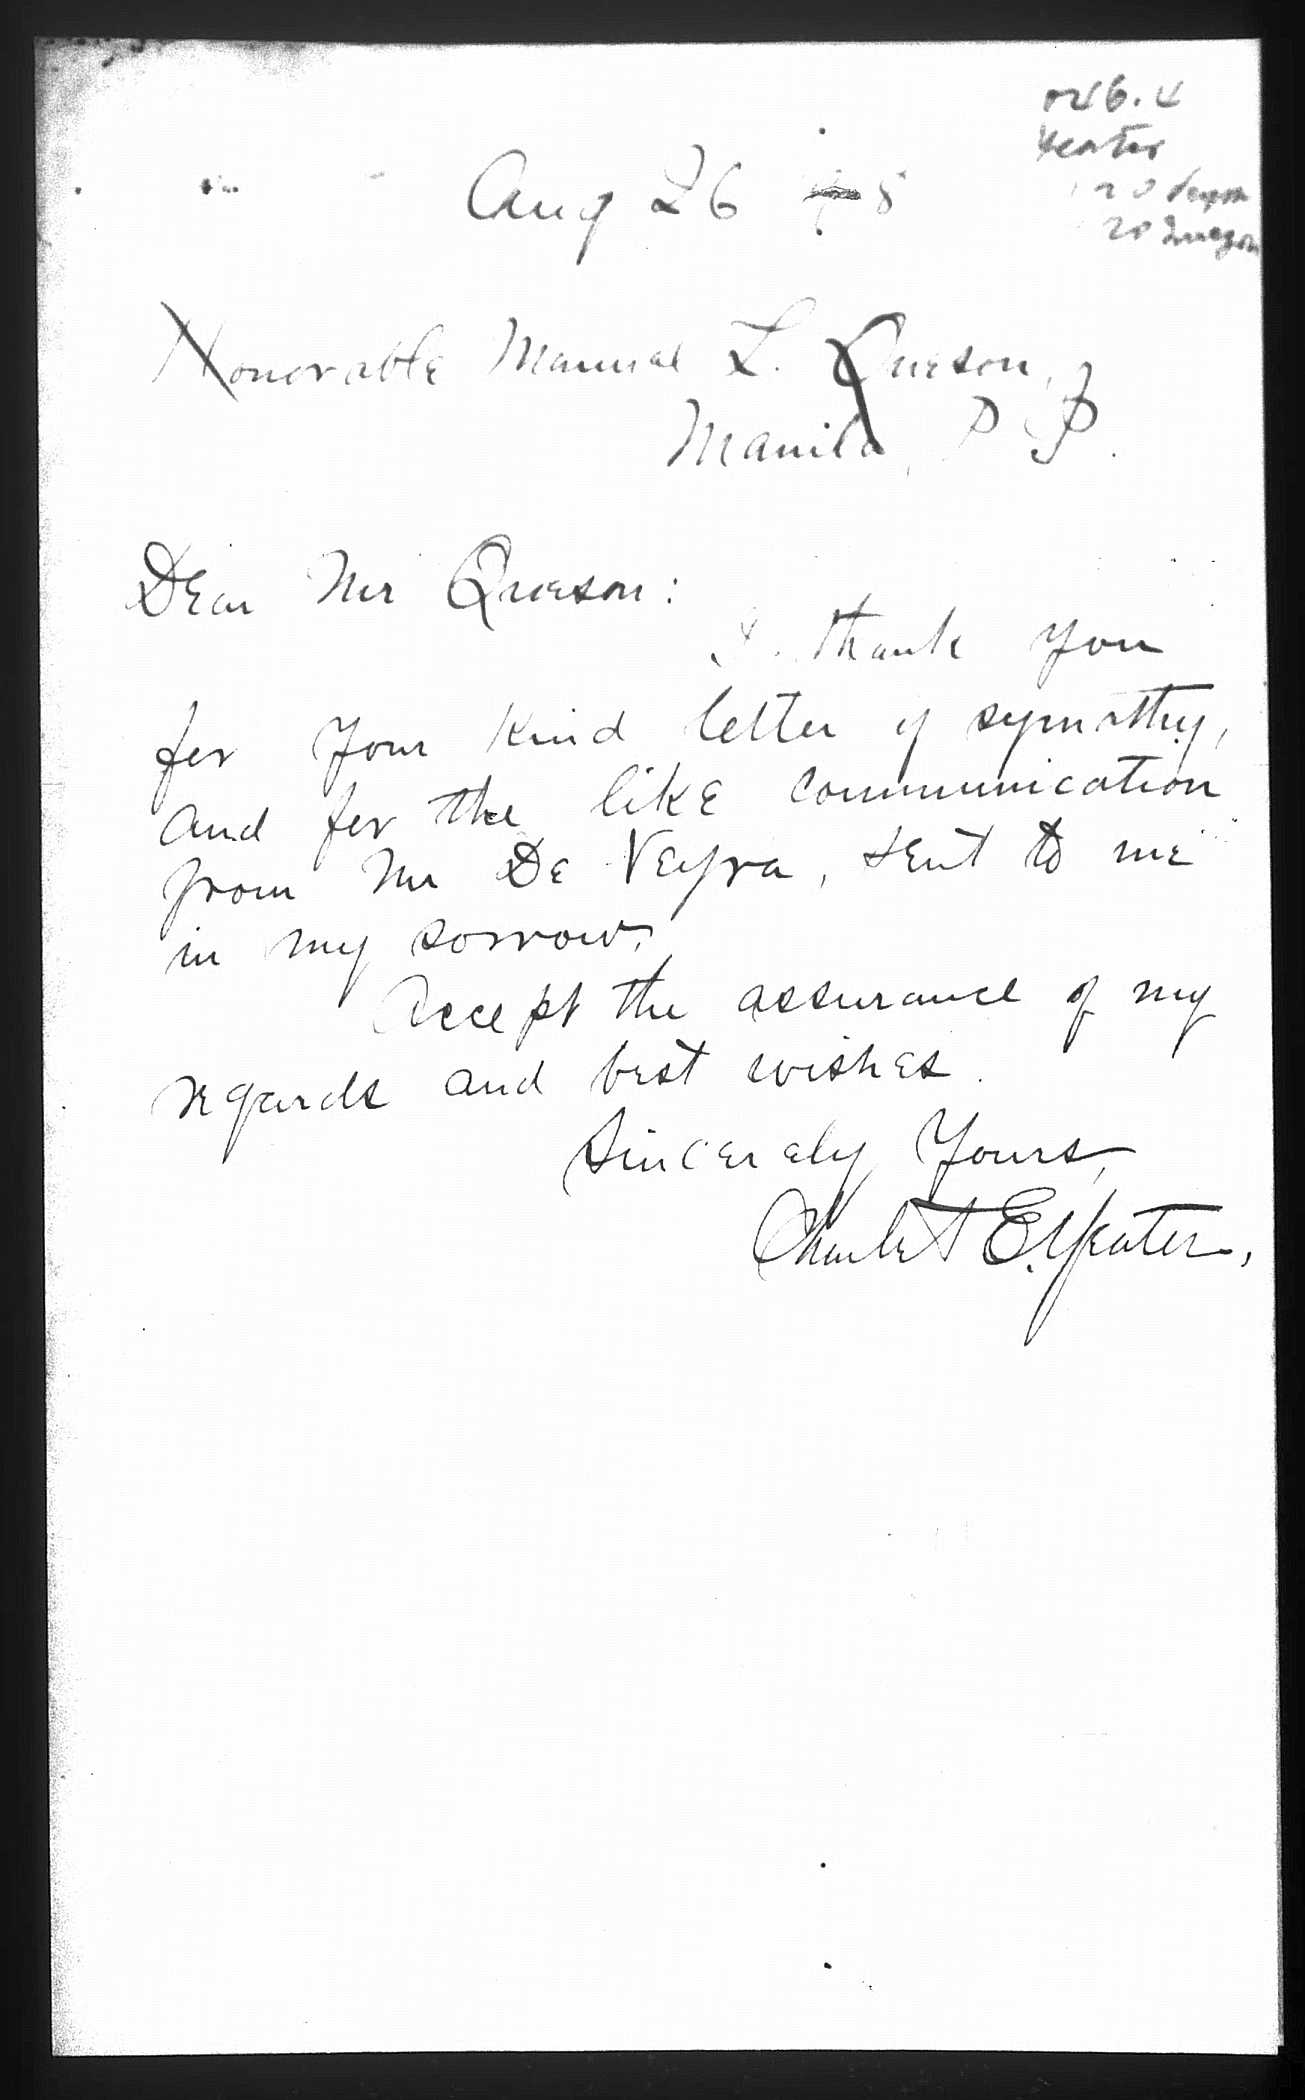 Yeater
Aug 26
Honorable Manuel L. Quezon,
Manila, P. I.
Dear Mr Quezon:
I thank you
for your kind letter of sympathy,
and for the like communication
from Mr De Veyra, sent to me
in my sorrow.
Accept the assurance of my
regards and best wishes.
Sincerely Yours,
Charles E. Yeater,